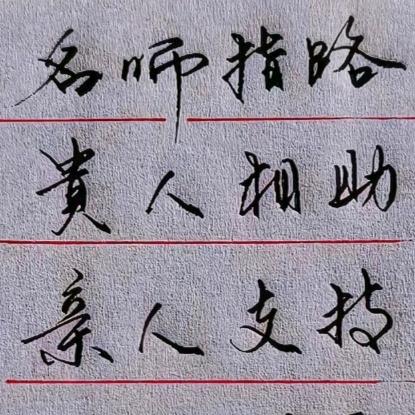 名师指路
貴人相助
亲人支持